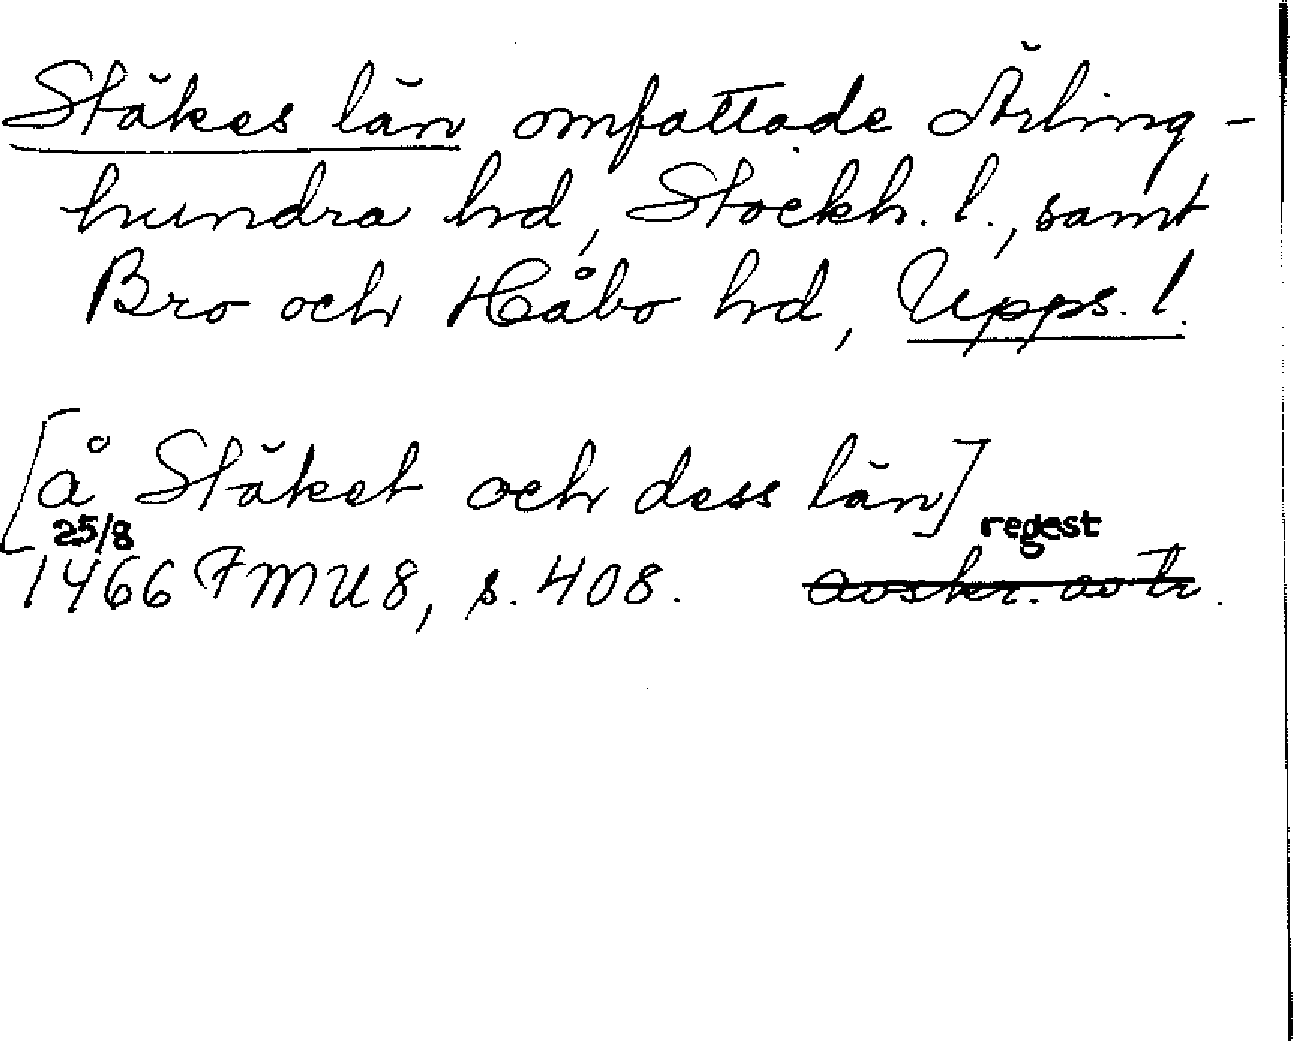 Stäkes län omfattade Ärling-
hundra hd, Stockh. l., samt
Bro och Håbo hd, Upps. l.
[å Stäket och dess län]
25/8 regest
1466 FMU 8, s. 408. avskr. av tr.